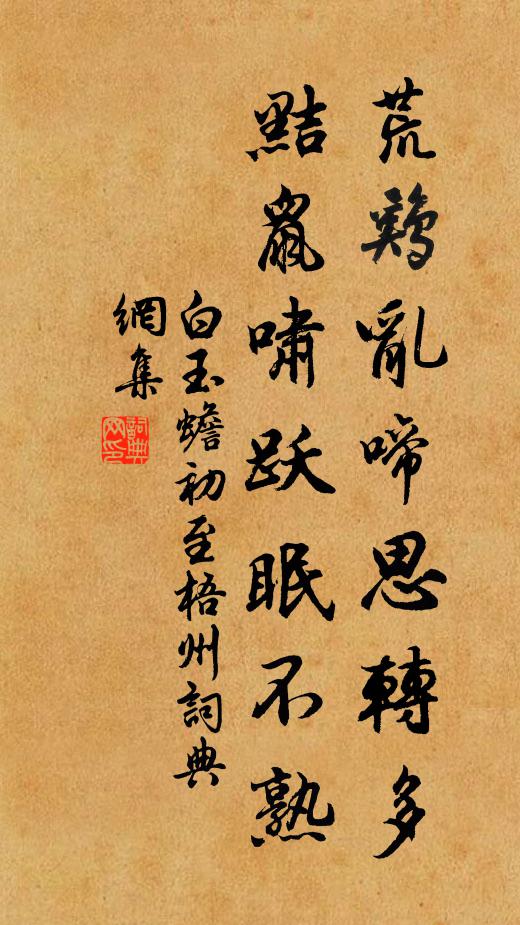 荒鷄亂啼思轉多
黠鼠嘯跃眠不熟
白玉蟾初至梧州詞典
網集
詞典
网印